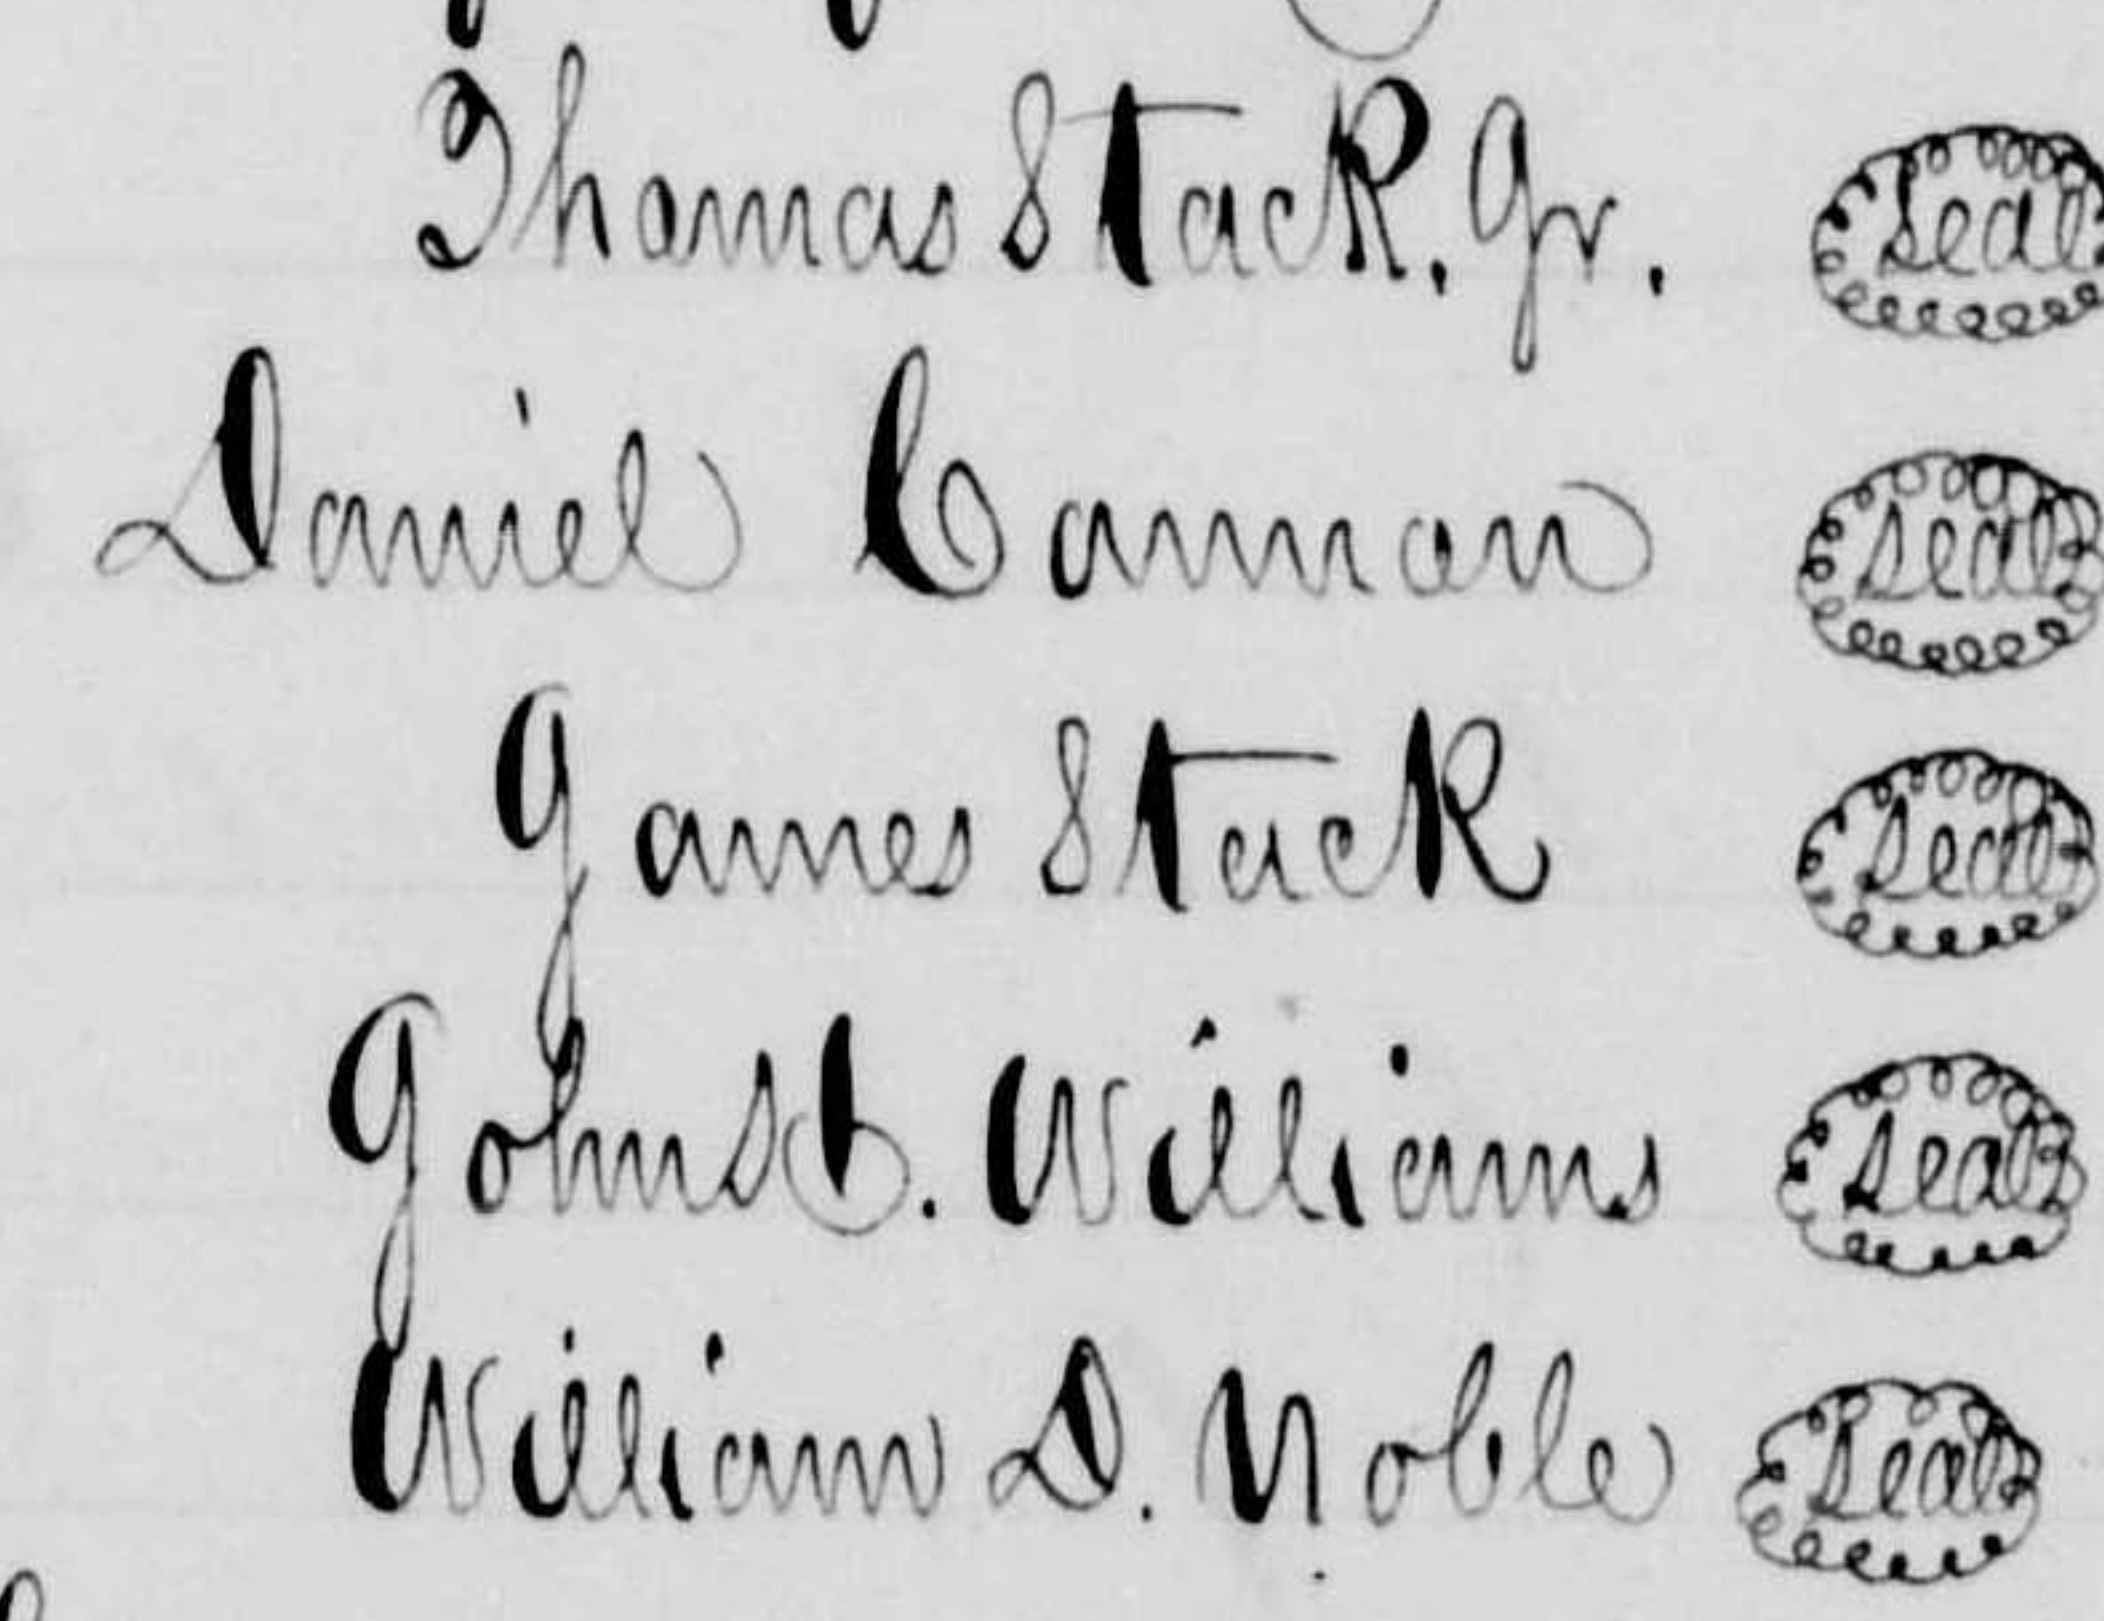 Thomas Stack, Jr. Seal
Daniel Cannan Seal
James Stack Seal
Williams Seal
William D. Noble Seal